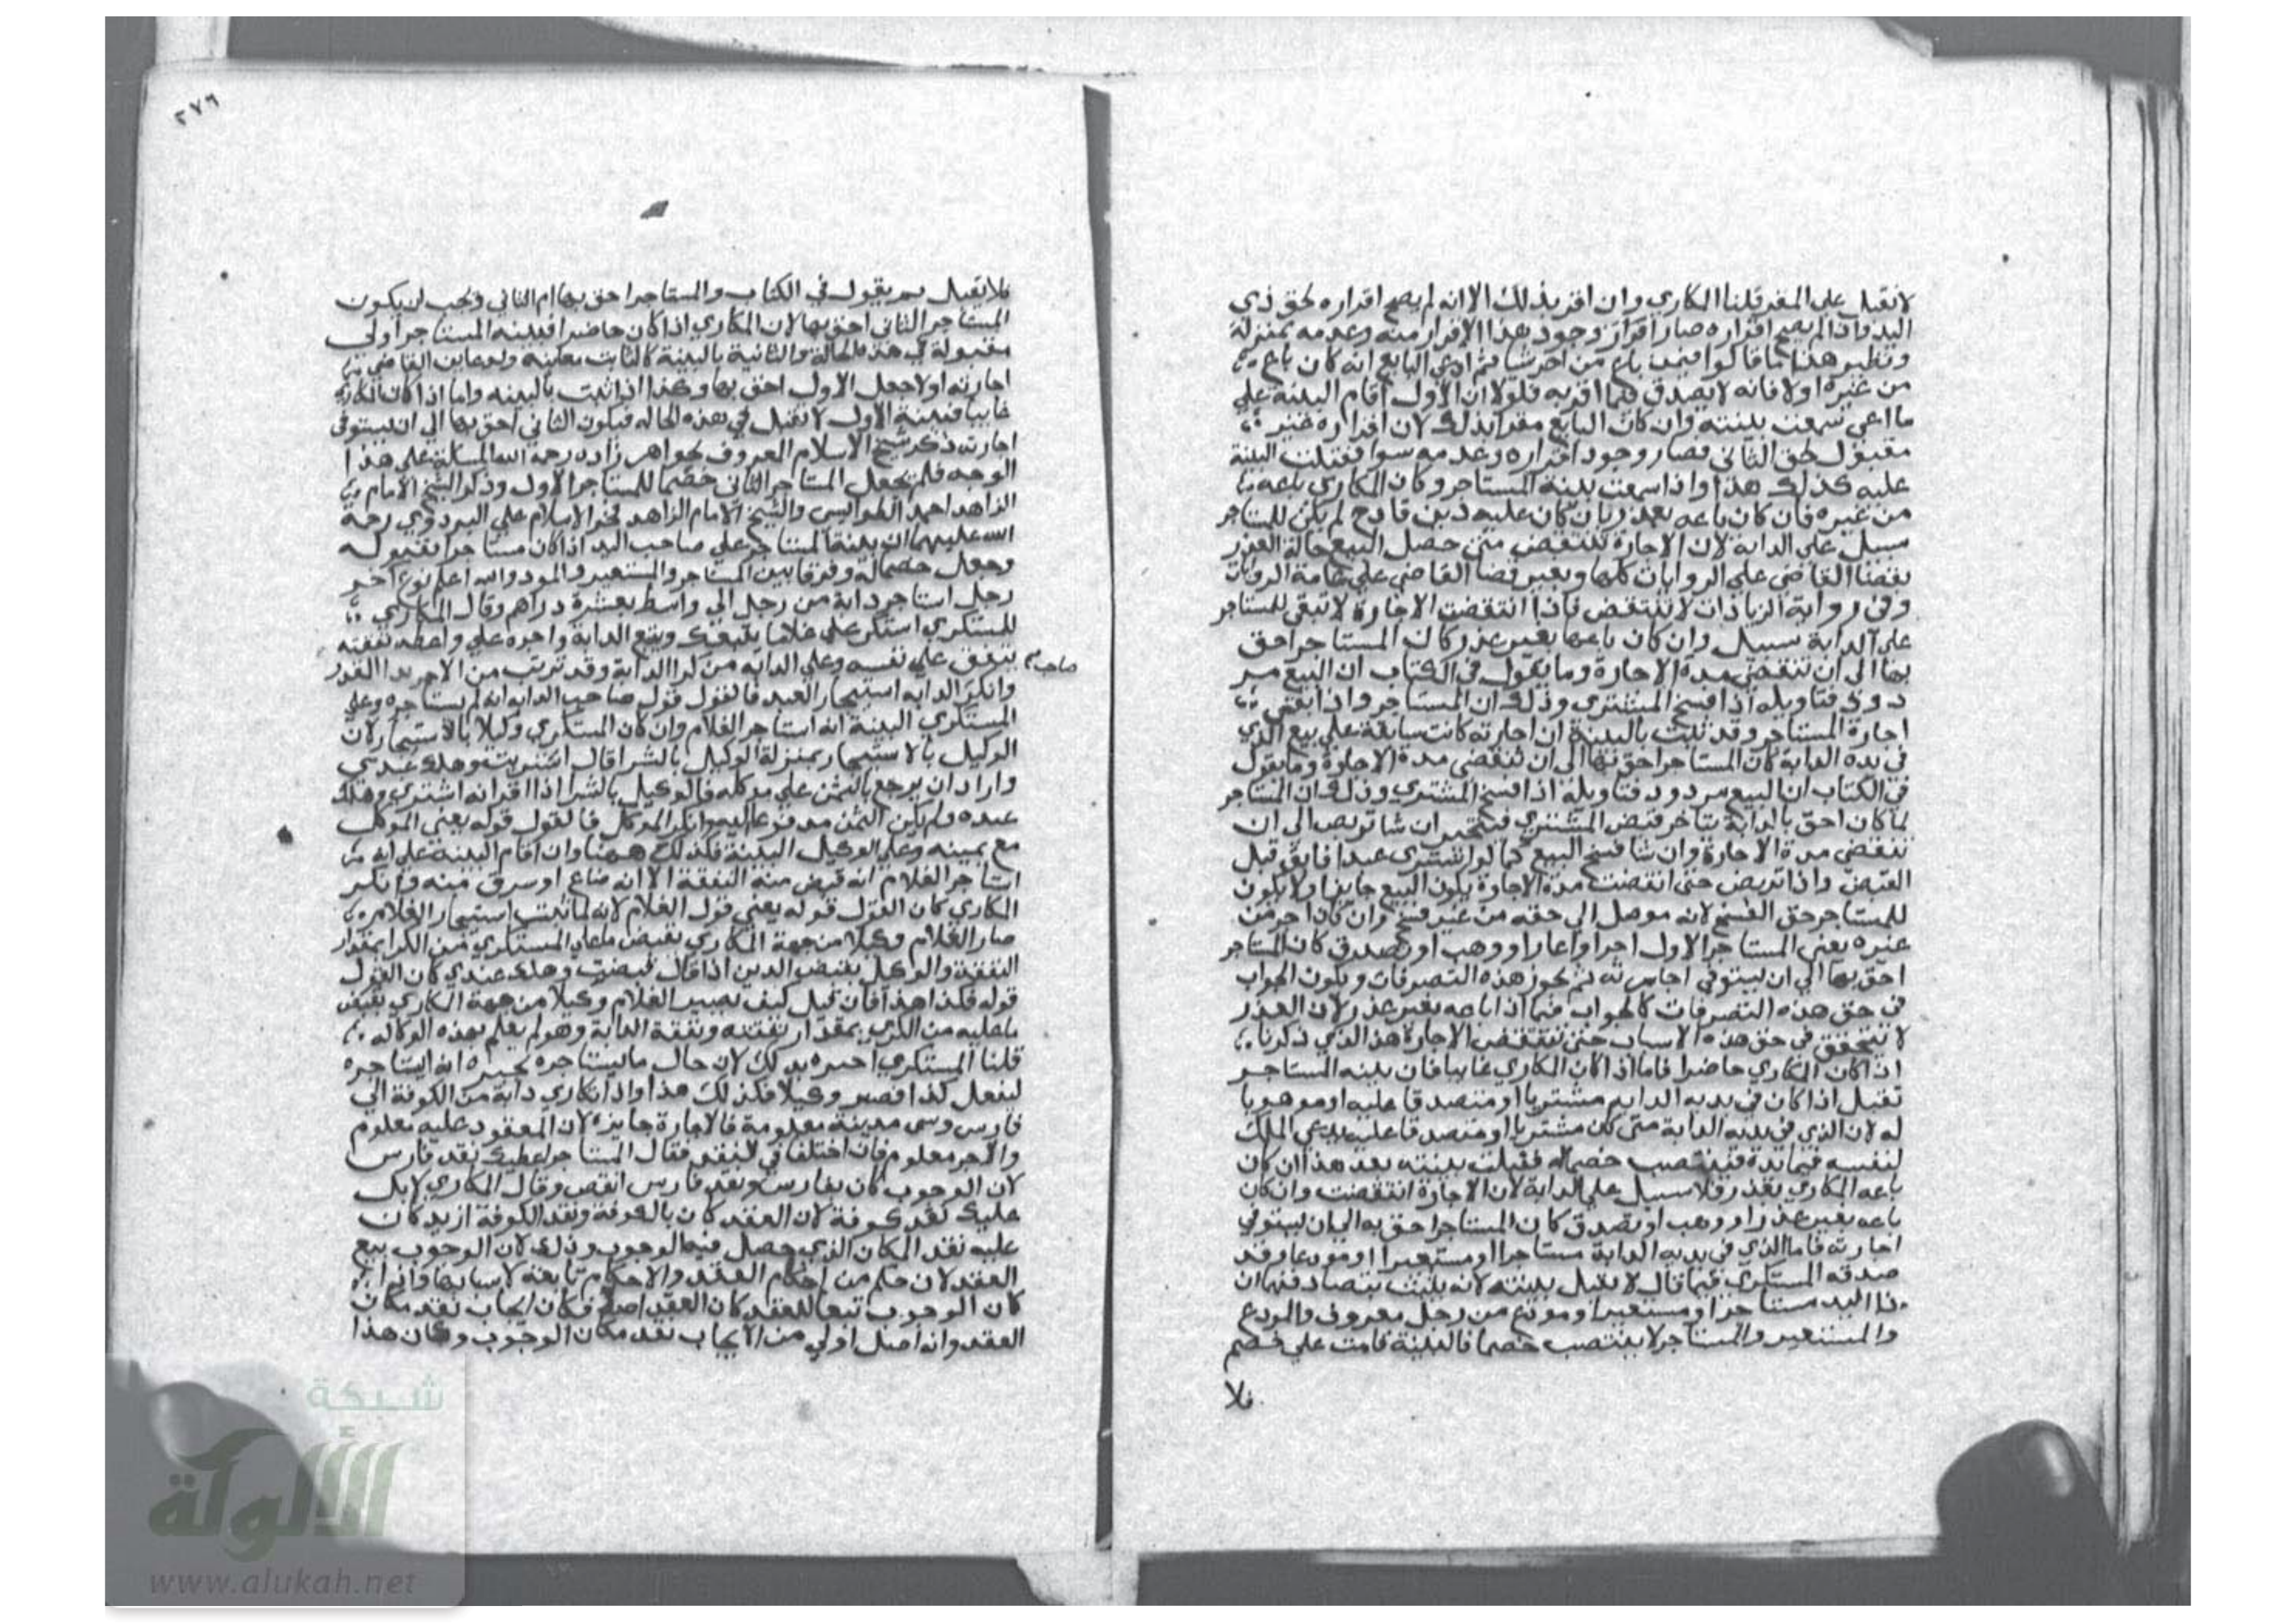 لا تقبل على المقر قلنا المكاري وان اقر بذلك الا انه لم يصح اقراره لحق ذي
اليد واذا لم يصح اقراره صار اقرار وجود هذا الاقرار منه وعدمه بمنزلة
ونظير هذا ما قالوا فيمن باع من اخر شيا ثم ادعي البايع انه كان باع
من غيره اولا فانه لا يصدق فيما اقر به فلو لا ان الاول اقام البينة علي
ما ادعي سمعت بينته وان كان البايع مقرا بذلك لان اقراره غير
مقبول لحق الثاني فصار وجود اقراره وعدمه سوا فقبلت البينة
عليه كذلك هذا واذا سمعت بينة المستاجر وكان المكاري باعه
من غيره فان كان باعه بعذر بان كان عليه دين فادح لم يكن للمستاجر
سبيل على الدابة لان الاجارة تنتقض متى حصل البيع حالة العذر
بقضا القاضي علي الروايات كلها وبغير قضا القاضي علي عامة الروايات
وفي رواية الزيادات لا ينتقض فاذا انتقضت الاجارة لا تبقي للمستاجر
على الدابة سبيل وان كان باعها بغير عذر كان المستاجر احق
بها الى ان تنقضي مدة الاجارة وما يقول في الكتاب ان البيع مر
دود فتاويله اذا فسخ المشتري وذلك ان المستاجر واذا بقض
اجارة المستاجر وقد ثبت بالبينة ان اجارته كانت سابقة علي بيع الذي
في يده الدابة كان المستاجر احق بها الى ان تنقضي مدة الاجارة وما يقول
في الكتاب ان البيع مردود فتاويله اذا فسخ المشتري وذلك ان المستاجر
لما كان احق بالدابة يتاخر قبض المشتري فيتخير ان شا تربص الى ان
تنقضي مدة الاجارة وان شا فسخ البيع كما لو اشتري عبدا فابق قبل
القبض واذا تربص حتى انقضت مدة الاجارة يكون البيع جايزا ولا يكون
للمستاجر حق الفسخ لانه موصل الي حقه من غير فسخ وان كان اجر من
غيره يعني المستاجر الاول اجر او اعار او وهب او تصدق كان المستاجر
احق بها الي ان يستوفي اجارته ثم تجوز هذه التصرفات ويكون الجواب
في حق هذه التصرفات كالجواب فيما اذا باعه بغير عذر لان العذر
لا يتحقق في حق هذه الاسباب حتى تنتقض الاجارة هذا الذي ذكرنا
اذا كان المكاري حاضرا فاما اذا كان المكاري غايبا فان بينه المستاجر
تقبل اذا كان في يديه الدابه مشتريا او متصدقا عليه او موهوبا
له لان الذي في يديه الدابة متى كان مشتريا او متصدقا عليه يدعي الملك
لنفسه فيما في يده فينتصب خصما له فقبلت بينته بعد هذا ان كان
باعه المكاري بعذر فلا سبيل علي الدابة لان الاجارة انتقضت وان كان
باعه بغير عذر او وهب او تصدق كان المستاجر احق به الى ان يستوفي
اجارته فاما الذي في يديه الدابة مستاجرا او مستعيرا او مودعا وقد
صدقه المستكري فيما قال لا يقبل بينته لانه يثبت بتصادقهما ان
ذا اليد مستاجرا ومستعيرا ومودع من رجل معروف والمودع
والمستعير والمستاجر لا ينتصب خصما فالبينة قامت علي خصم
فلا
٢٧٦
فلا تقبل ثم يقول في الكتاب والمستاجر احق بها ام الثاني ويجب ان يكون
المستاجر الثاني احق بها لان المكاري اذا كان حاضرا فبينه المستاجر اولى
مقبولة في هذه الحالة والثانية بالبينة كالثابت معاينة ولو عاين القاضي
اجارته اولا جعل الاول احق بها وكذا اذا ثبت بالبينه واما اذا كان المكاري
غايبا فبينة الاول لا تقبل في هذه الحاله فيكون الثاني احق بها الى ان يستوفى
اجارته ذكر شيخ الاسلام المعروف بخواهر زاده رحمه الله المسالة علي هذا
الوجه فلم يجعل المستاجر الثاني خصما للمستاجر الاول وذكر الشيخ الامام
الزاهد احمد الطواويسي والشيخ الامام الزاهد فخر الاسلام علي البزدوي رحمة
الله عليهما ان بينة المستاجر علي صاحب اليد اذا كان مستاجرا مقبوله
وجعل خصما له وفرقا بين المستاجر والمستعير والمودع والله اعلم نوع اخر
رجل استاجر دابة من رجل الي واسط بعشرة دراهم وقال المكاري
للمستكري استكر علي غلاما يتبعك ويتبع الدابة واجره علي واعطه نفقته
ينفق علي نفسه وعلي الدابه من كرا الدابة وقد تربت من الاجر بهذا القدر
صاحب
وانكر الدابه استيجار العبد فالقول قول صاحب الدابه انه لم يستاجره وعلى
المستكري البينة انه استاجر الغلام وان كان المستكري وكيلا بالاستيجار لان
الوكيل بالاستيجار بمنزلة الوكيل بالشرا قال اشتريت وهلك عندي
واراد ان يرجع بالثمن علي موكله فالوكيل بالشرا اذا اقر انه اشتري وهلك
عنده ولم يكن الثمن مدفوعا اليه وانكر الموكل فالقول قوله يعني الموكل
مع يمينه وعلي الوكيل البينة فكذلك ههنا وان اقام البينة علي انه
استاجر الغلام انه قبض منه النفقة الا انه ضاع او سرق منه وانكر
المكاري كان القول قوله يعني قول الغلام لانه لما ثبت استيجار الغلام
صار الغلام وكيلا من جهة المكاري بقبض ما علي المستكري من الكرا بمقدار
النفقة والوكيل بقبض الدين اذا قال قبضت وهلك عندي كان القول
قوله فكذا هذا فان قيل كيف يصير الغلام وكيلا من جهة المكاري بقبض
ما عليه من الكري بمقدار نفقته ونفقة الدابة وهو لم يعلم بهذه الوكاله
قلنا المستكري اخبره بذلك لان حال ما يستاجره يخبره انه استاجره
ليفعل كذا فصير وكيلا فكذلك هذا واذا تكاري دابة من الكوفة الى
فارس وسمى مدينة معلومة فالاجارة جايزة لان المعقود عليه معلوم
والاجر معلوم فان اختلفا في النقد فقال المستاجر اعطيك نقد فارس
لان الوجوب كان بفارس ونقد فارس انقص وقال المكاري لا بل
عليك نقد كوفة لان العقد كان بالكوفة ونقد الكوفة ازيد كان
عليه نقد المكان الذي حصل فيه الوجوب وذلك لان الوجوب بيع
العقد لان حكم من احكام العقد والاحكام تابعة لاسبابها واذا
كان الوجوب تبعا للعقد كان العقد اصلا فكان ايجاب نقد مكان
العقد وانه اصل اولي من ايجاب نقد مكان الوجوب وكان هذا
شبكة
الألوكة
www.alukah.net